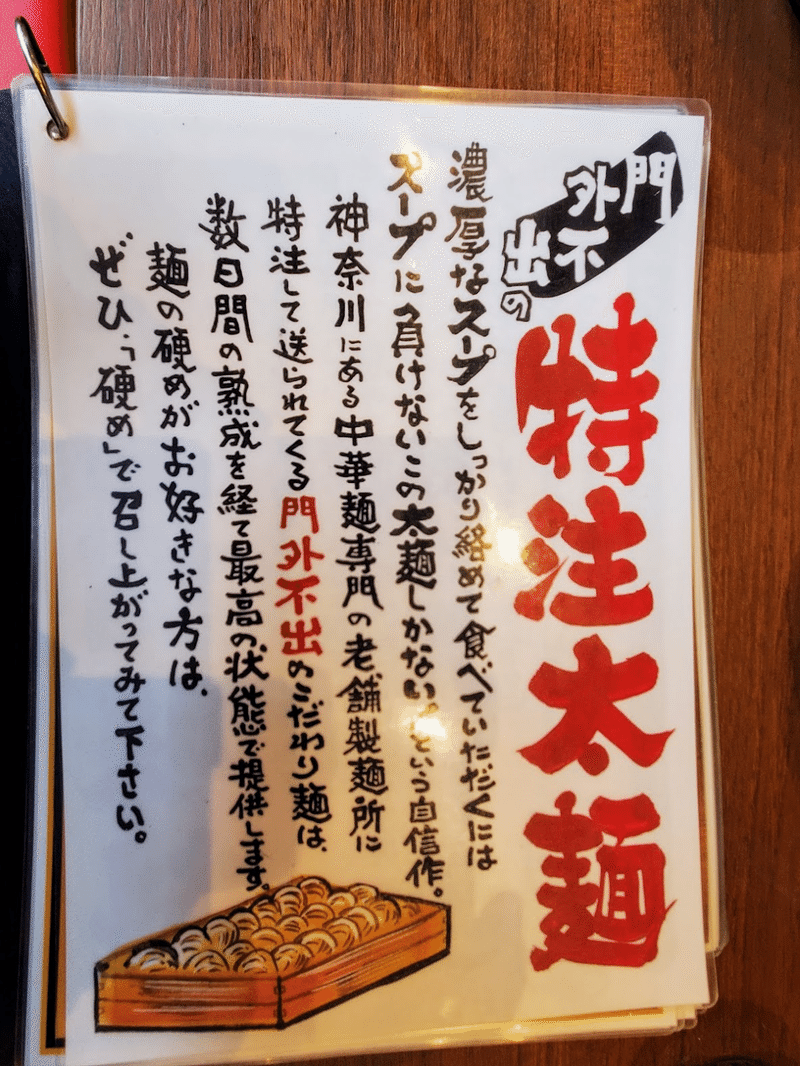 門外不出の
特注太麺
濃厚なスープをしっかり絡めて食べていただくには
スープに負けないこの太麺しかない。という自信作。
神奈川にある中華麺専門の老舗製麺所に
特注して送られてくる門外不出のこだわり麺は、
数日間の熟成を経て最高の状態で提供します。
麺の硬めがお好きな方は、
ぜひ、「硬め」で召し上がってみて下さい。